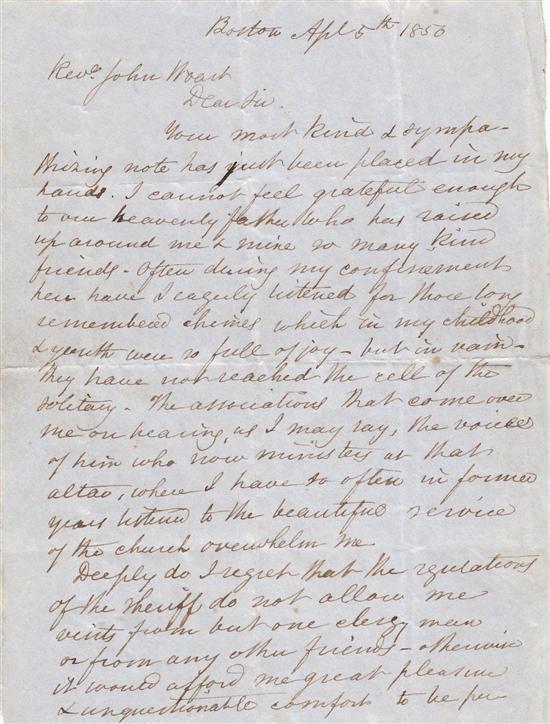 Boston Apl 5th 1850
Revd John Woart
Dear Sir.
Your most kind & sympa-
thizing note has just been placed in my
hands. I cannot feel grateful enough
to our heavenly father who has raised
up around me & mine so many kind
friends. Often during my confinement
here have I eagerly listened for those long
remembered chimes which in my childhood
& youth were so full of joy - but in vain -
they have not reached the cell of the
solitary - The associations that come over
me on hearing, as I may say, the voice
of him who now ministers at that
altar, where I have so often in former
years listened to the beautiful service
of the church overwhelm me
Deeply do I regret that the regulations
of the Sheriff do not allow me
visits from but one clergyman
or from any other friends - otherwise
it would afford me great pleasure
& unquestionable comfort to be per